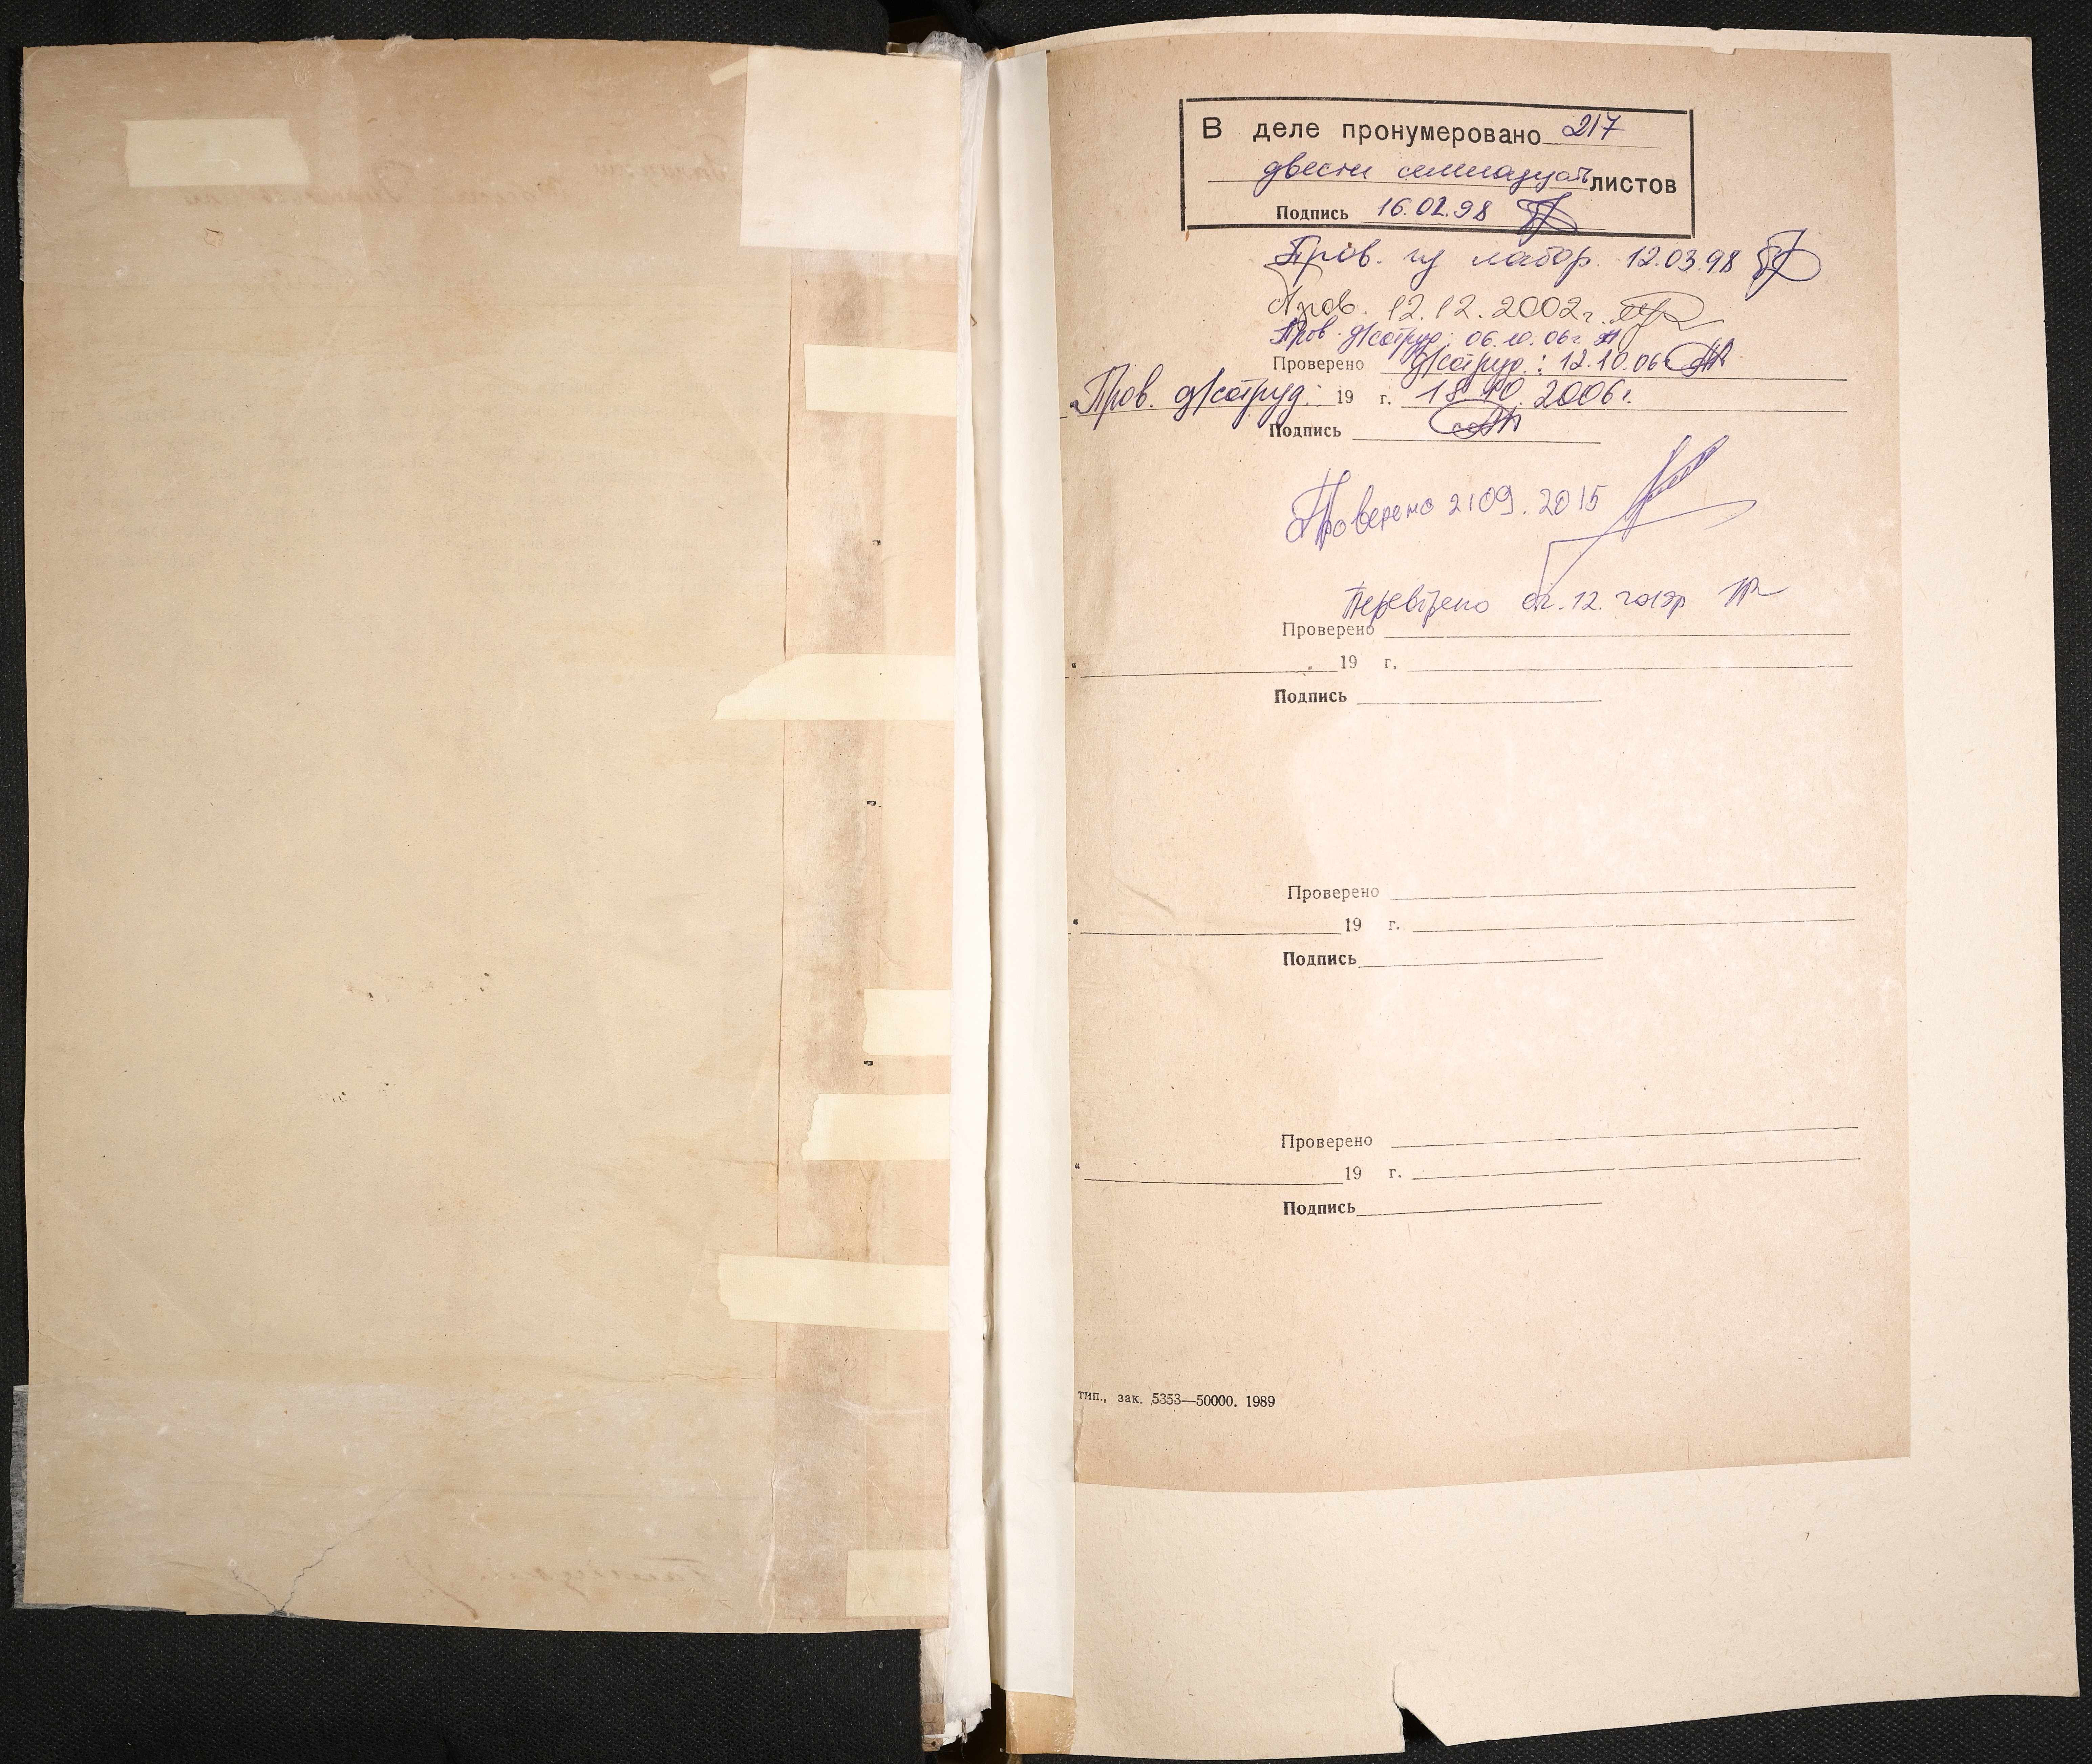 В деле пронумеровано 217
двести семнадцать листов
Подпись 16.02.98
Пров. из лабор. 12.03.98
Пров. 12.12.2002г.
Пров. д/сотруд.: 06.10.06г.
Проверено д/сотруд.: 12.10.06г
Пров. д/сотруд. 19 г. 18.10.2006г.
Подпись
Проверено 2109.2015
Перевірено 12.
Проверено
" 19 г.
Подпись
Проверено
" 19 г.
Подпись
Проверено
" 19 г.
Подпись
тип., зак. 5353—50000. 1989